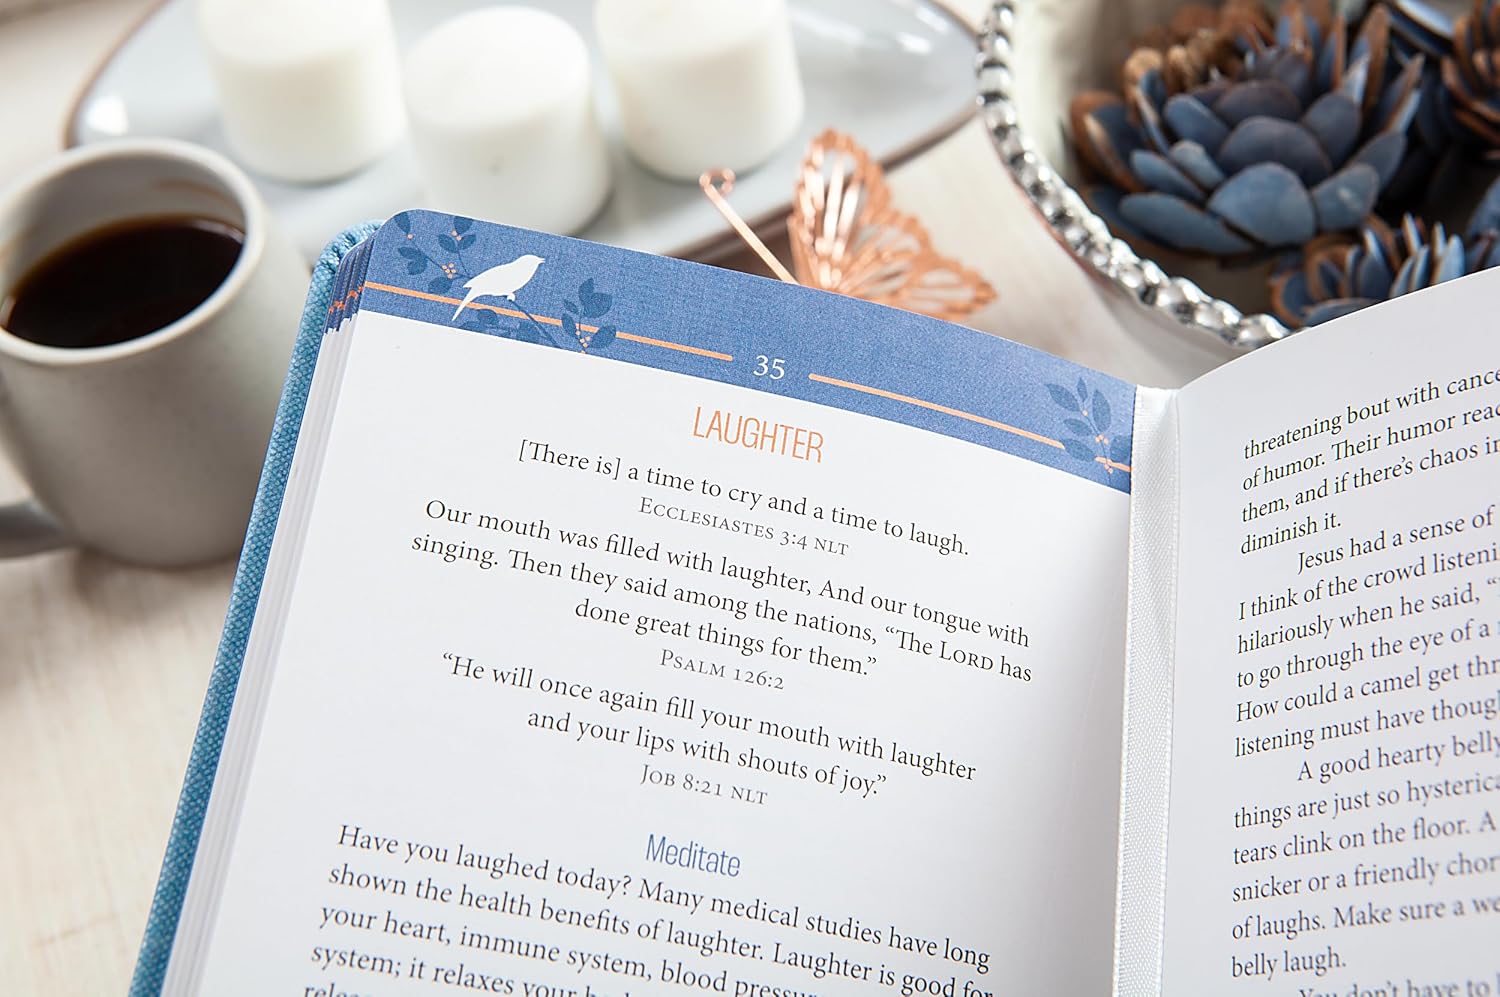 35
LAUGHTER
[There is] a time to cry and a time to laugh.
ECCLESIASTES 3:4 NLT
Our mouth was filled with laughter, And our tongue with
singing. Then they said among the nations, “The LORD has
done great things for them.”
PSALM 126:2
“He will once again fill your mouth with laughter
and your lips with shouts of joy.”
JOB 8:21 NLT
Meditate
Have you laughed today? Many medical studies have long
shown the health benefits of laughter. Laughter is good for
your heart, immune system, blood
system; it relaxes your
threatening bout with
of humor. Their humor
them, and if there’s chaos
diminish it.
Jesus had a sense of
I think of the crowd
hilariously when he said, “
to go through the eye of a
How could a camel get
listening must have
A good hearty
things are just so
tears clink on the floor. A
snicker or a friendly
of laughs. Make sure a
belly laugh.
You don’t have to